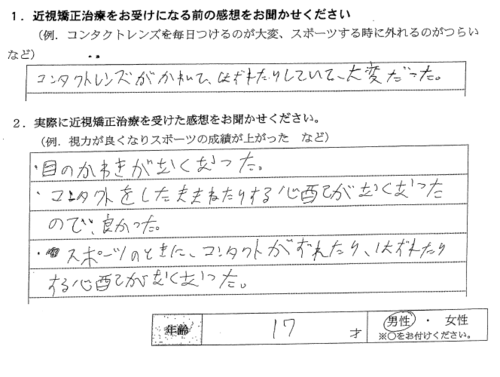 １．近視矯正治療をお受けになる前の感想をお聞かせください
（例．コンタクトレンズを毎日つけるのが大変、スポーツする時に外れるのがつらい
など）
コンタクトレンズがかわいて、はずれたりしていて、大変だった。
２．実際に近視矯正治療を受けた感想をお聞かせください。
（例．視力が良くなりスポーツの成績が上がった　など）
・目のかわきがなくなった。
・コンタクトをしたままねたりする心配がなくなった
ので、良かった。
・スポーツのときに、コンタクトがずれたり、はずれたり
する心配がなくなった。
年齢　17　才　男性　・　女性
※○をお付けください。